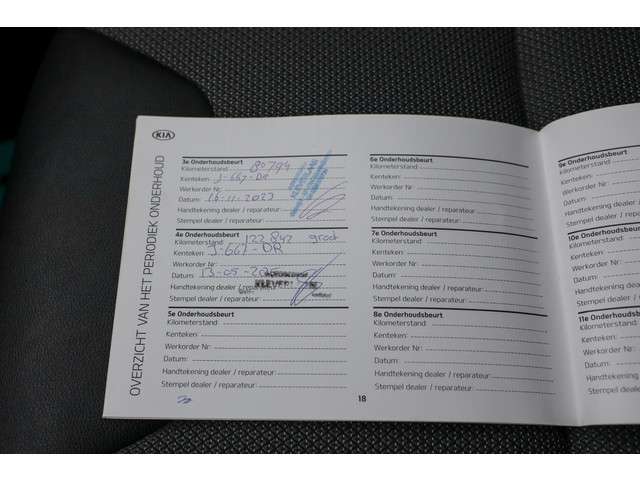 KIA
OVERZICHT VAN HET PERIODIEK ONDERHOUD
3e Onderhoudsbeurt
Kilometerstand: 80794
Kenteken: J-667-DR
Werkorder Nr.:
Datum: 16-11-2023
Handtekening dealer / reparateur:
Stempel dealer / reparateur:
4e Onderhoudsbeurt
Kilometerstand: 122842 groot
Kenteken: J-667-DR
Werkorder Nr.:
Datum: 13-05-
Handtekening dealer / reparateur:
Stempel dealer / reparateur:
5e Onderhoudsbeurt
Kilometerstand:
Kenteken:
Werkorder Nr.:
Datum:
Handtekening dealer / reparateur:
Stempel dealer / reparateur:
6e Onderhoudsbeurt
Kilometerstand:
Kenteken:
Werkorder Nr.:
Datum:
Handtekening dealer / reparateur:
Stempel dealer / reparateur:
7e Onderhoudsbeurt
Kilometerstand:
Kenteken:
Werkorder Nr.:
Datum:
Handtekening dealer / reparateur:
Stempel dealer / reparateur:
8e Onderhoudsbeurt
Kilometerstand:
Kenteken:
Werkorder Nr.:
Datum:
Handtekening dealer / reparateur:
Stempel dealer / reparateur:
18
9e Onderhoudsbeurt
Kilometerstand:
Kenteken:
Werkorder Nr.:
Datum:
Handtekening dealer
Stempel dealer / rep
10e Onderhoudsbeurt
Kilometerstand:
Kenteken:
Werkorder Nr.:
Datum:
Handtekening dealer
Stempel dealer / rep
11e Onderhoudsbeurt
Kilometerstand:
Kenteken:
Werkorder Nr.:
Datum:
Handtekening dealer
Stempel dealer / repa